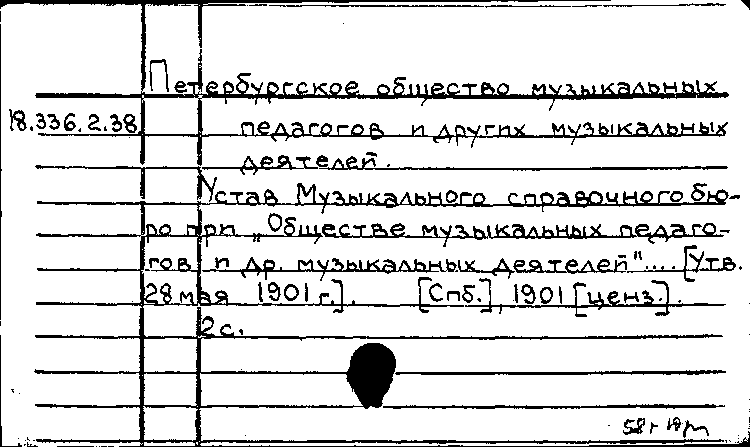 Петербургское общество музыкальных
18.336.2.38 педагогов и других музыкальных
деятелей.
Устав Музыкального справочного бю-
ро при „Обществе музыкальных педаго-
гов и др. музыкальных деятелей".... [Утв.
28 мая 1901 г.]. [Спб.], 1901 [ценз.].
2 с.
58г